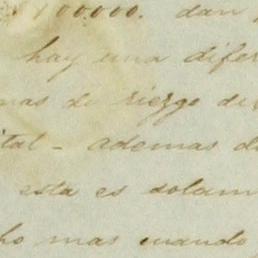 100.000. dan
hay una difer
mas de riezgo de
ital - ademas d
esta es solam
ho mas cuando